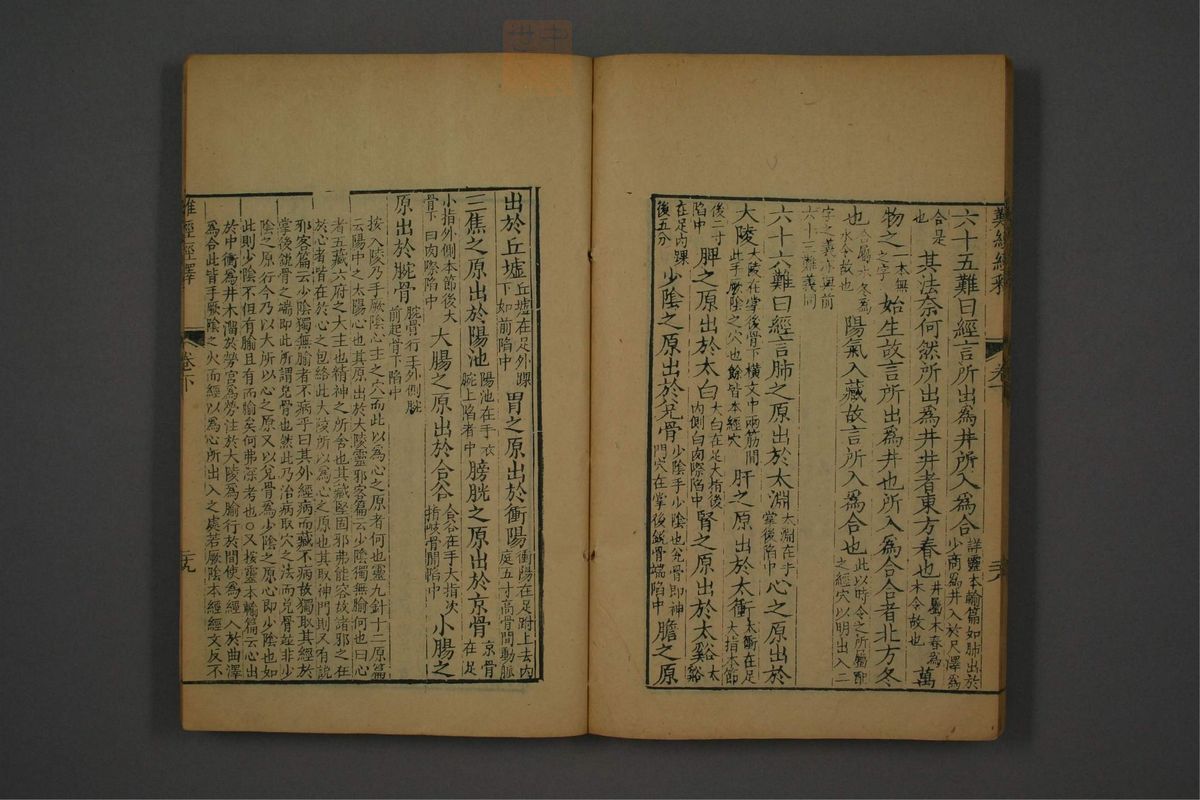 難經經釋
卷下
三八
六十五難曰經言所出爲井所入爲合詳靈本輸篇如肺出於少商爲井入於尺澤爲
合是也其法奈何然所出爲井井者東方春也井屬木春爲木令故也萬
物之一本無之字始生故言所出爲井也所入爲合合者北方冬
也合屬水冬爲水令故也陽氣入藏故言所入爲合也此以時令之所屬配之經穴以明出入二
字之義亦與前六十三難義同
六十六難曰經言肺之原出於太淵太淵在手掌後陷中心之原出於
大陵大陵在掌後骨下橫文中兩筋間此手厥陰之穴也餘皆本經穴肝之原出於太衝太衝在足大指本節
後二寸陷中脾之原出於太白太白在足大指後內側白肉際陷中腎之原出於太谿太谿
在足內踝後五分少陰之原出於兌骨少陰手少陰也兌骨即神門穴在掌後銳骨端陷中膽之原
出於丘墟丘墟在足外踝下如前陷中胃之原出於衝陽衝陽在足跗上去內庭五寸高骨間動脈
三焦之原出於陽池陽池在手表腕上陷者中膀胱之原出於京骨京骨在足
小指外側本節後大骨下白肉際陷中大腸之原出於合谷合谷在手大指次指岐骨間陷中小腸之
原出於腕骨腕骨在手外側腕前起骨下陷中
按大陵乃手厥陰心主之穴而此以爲心之原者何也靈九針十二原篇
云陽中之太陽心也其原出於大陵靈邪客篇云少陰獨無腧何也曰心
者五藏六府之大主也精神之所舍也其藏堅固邪弗能容故諸邪之在
於心者皆在於心之包絡此大陵所以爲心之原也其取神門則又有說
邪客篇云少陰獨無腧者不病乎曰其外經病而藏不病故獨取其經於
掌後銳骨之端即此所謂兌骨也然此乃治病取穴之法而兌骨並非少
陰之原行今乃以大所以心之原又以兌骨爲少陰之原心即少陰也如
此則少陰不但有腧且有兩腧矣何弗深考也○又按靈本輸篇云心出
於中衝爲井木溜於勞宮爲滎注於大陵爲腧行於間使爲經入於曲澤
爲合此皆手厥陰之火而經以爲心所出入之處若厥陰本經經文反不
難經經釋
卷下
三九